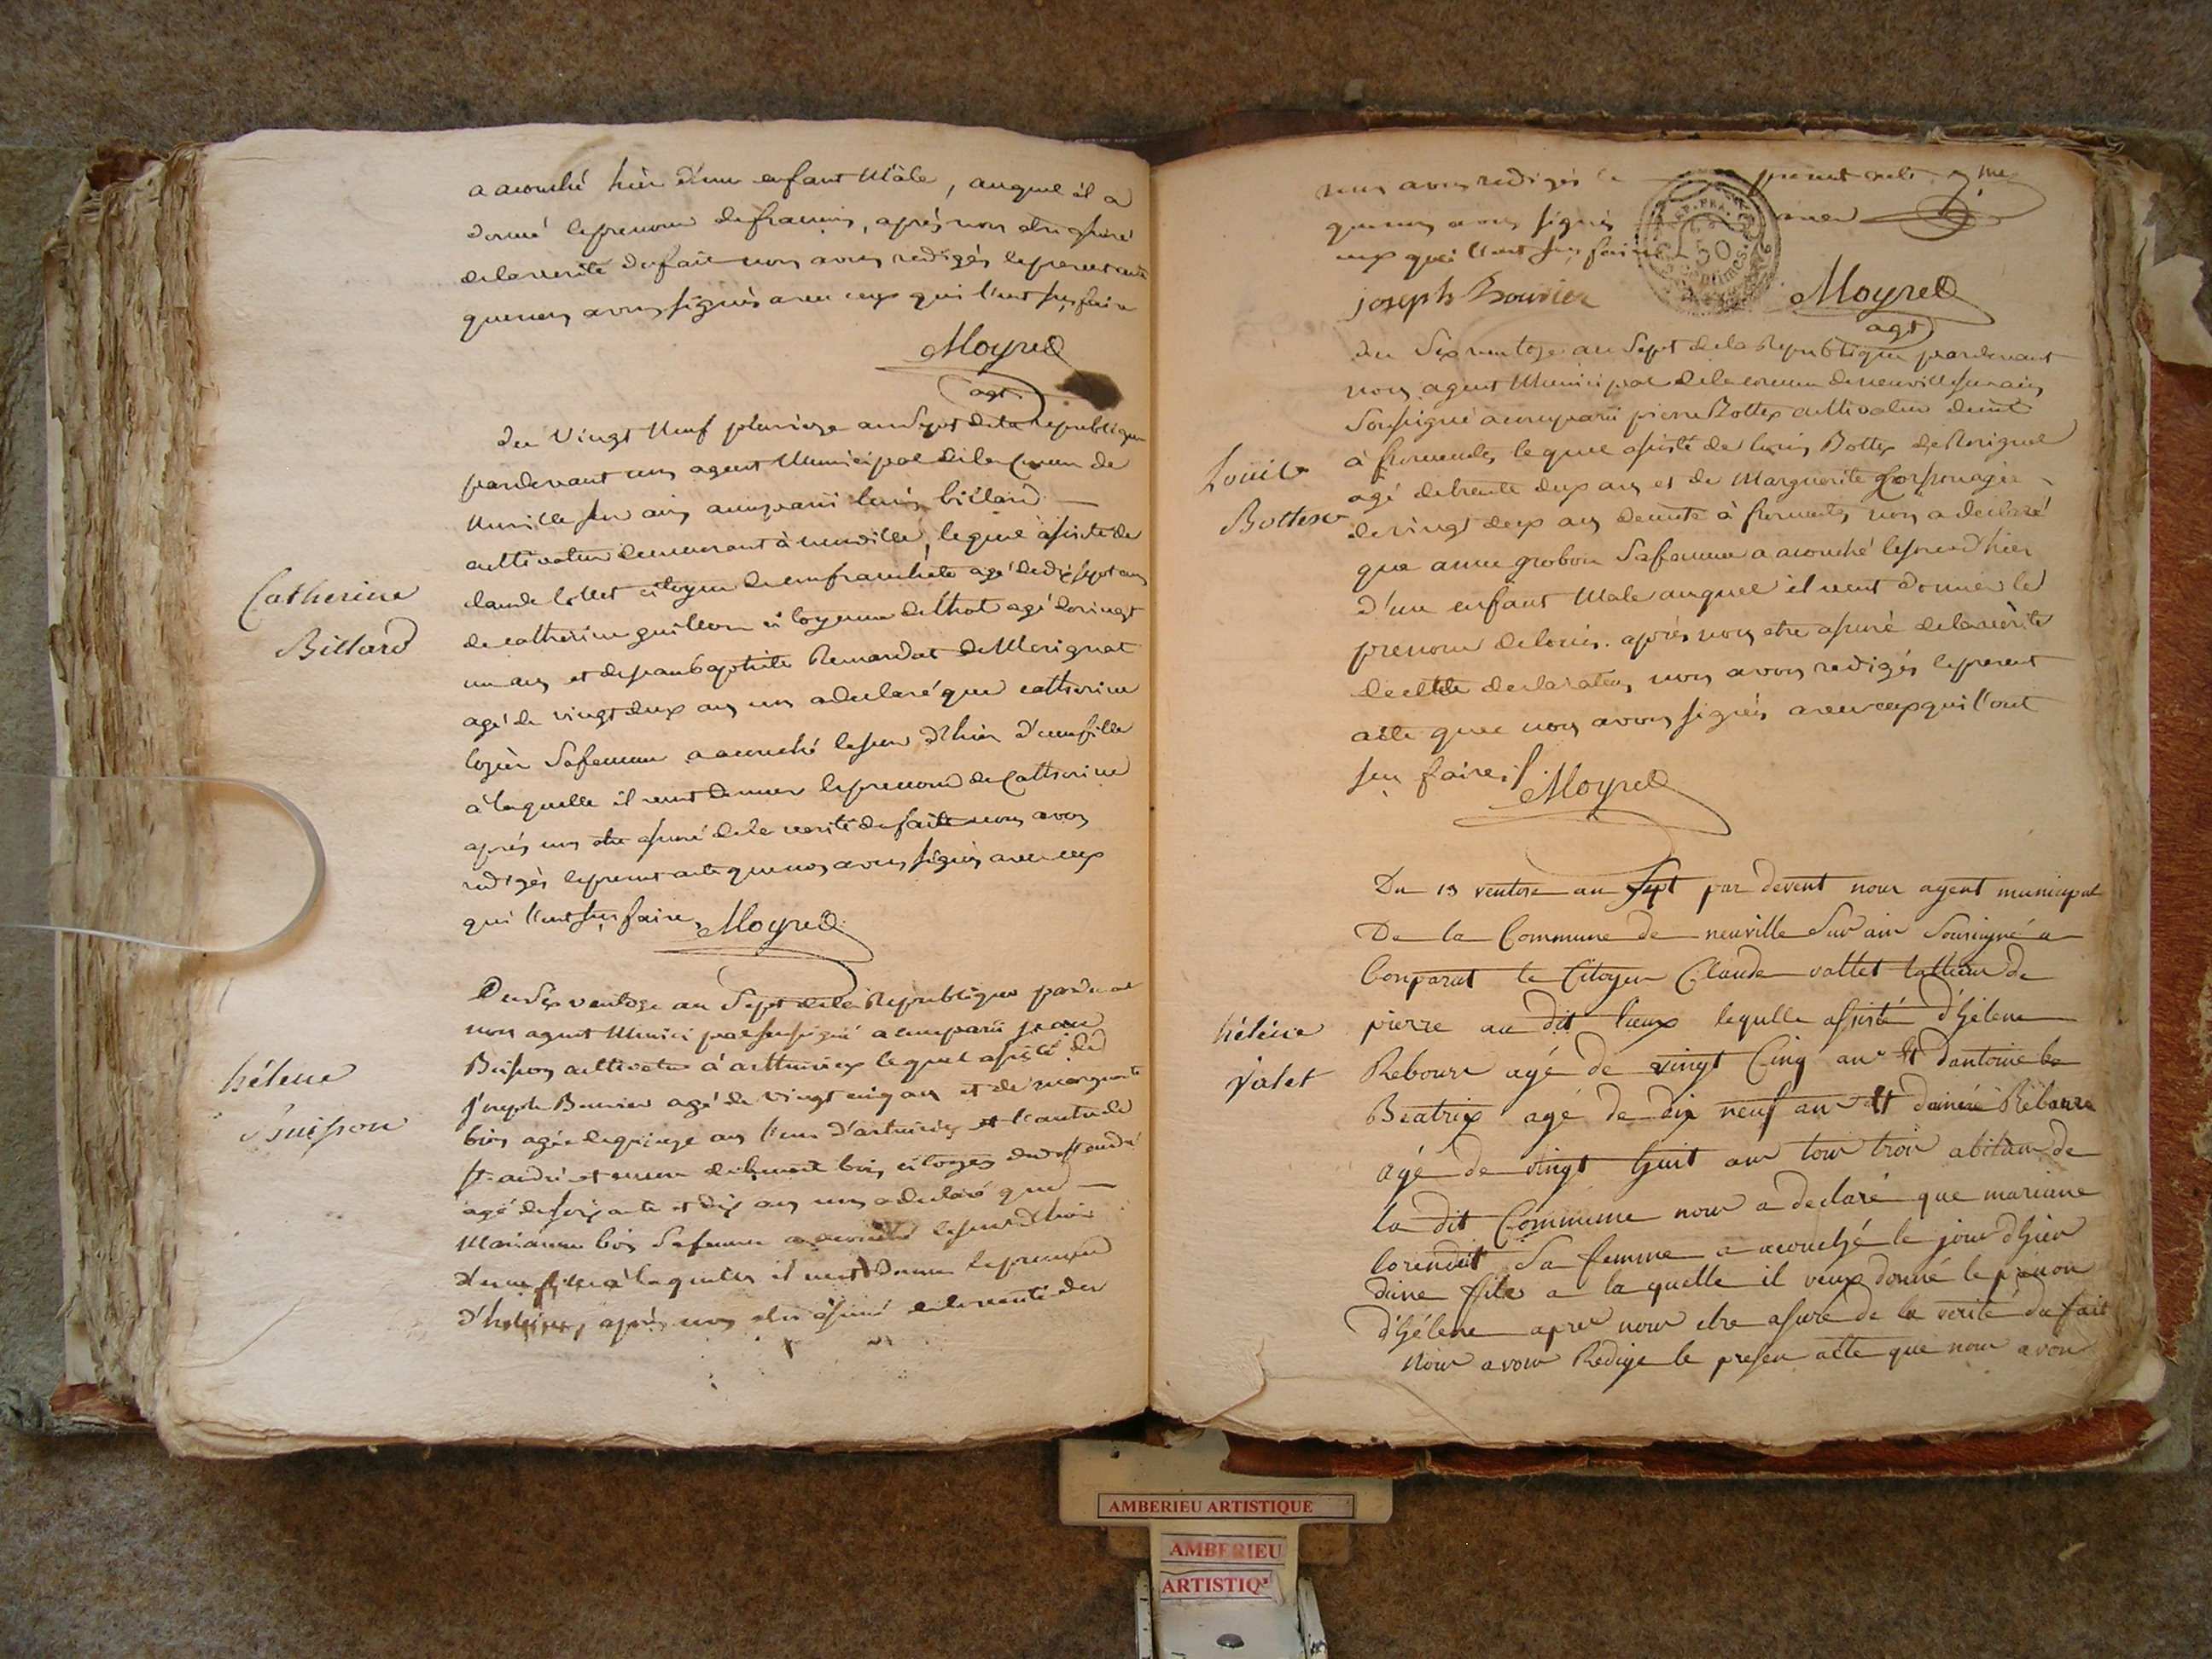 a acouché hier d'un enfant Mâle, auquel il a
donné le prenom de francois, après nous etre assuré
de la verité du fait nous avons redigés le present acte
que nous avons signés avec ceux qui l'ont sçu faire
Moyret
agt
Du Vingt Neuf pluviose an Sept de la republique
pardevant nous agent Municipal de la Comm de
Neuville sur ain, a comparu louis billard
cultivateur demeurant à neuville, lequel assisté de
claude Collet citoyen de agé de dix sept ans
de catherine guillon citoyenne de thol agé de vingt
un ans et de jean baptiste Renardat de Merignat
agé de vingt deux ans nous a declaré que catherine
Sa femme a acouché le jour d'hier d'une fille
à laquelle il veut donner le prenom de Catherine
après nous etre assuré de la verité du fait nous avons
redigés le present acte que nous avons signés avec ceux
qui l'ont sçu faire, Moyret
Catherine
Billard
Du Six ventose an Sept de la Republique pardevant
nous agent Municipal soussigné a comparu jean
Buisson cultivateur à lequel assisté de
joseph Bouvier agé de Vingt cinq ans et de marguerite
bois agée de quinze ans l'un d' et l'autre de
st andré et encore de bois citoyen du dt st andré
agé de soixante et dix ans nous a declaré que
Marianne bois Sa femme a acouché le jour d'hier
d'une fille à laquelle il veut donner le prenom
d'helene, après nous etre assuré de la verité du
hélene
Buisson
nous avons redigés le present acte
que nous avons signés avec
ceux qui l'ont sçu faire
REP. FRA.
50
centimes
joseph Bouvier Moyret
agt
Du Six ventose an Sept de la Republique pardevant
nous agent Municipal de la comm de neuville sur ain
Soussigné a comparu pierre Bottex cultivateur demt
à fromentes lequel assisté de louis Bottex de Merignat
agé de trente deux ans et de Marguerite
de vingt deux ans demte à fromentes, nous a declaré
que anne grobon Sa femme a acouché le jour d'hier
d'un enfant Male auquel il veut donner le
prenom de louis. après nous etre assuré de la verité
de cette declaration, nous avons redigés le present
acte que nous avons signés avec ceux qui l'ont
sçu faire. Moyret
Louis
Bottex
Du 13 ventose an Sept par devent nous agent municipal
De la Commune de neuville Sur ain Sousigné a
Conparat le Citoyen Claude vallet tallieur de
pierre au dit lieux lequelle assisté d'hélene
Rebours agé de vingt Cinq ans et d'antoine
Beatrix agé de dix neuf ans et d'aimé Rebours
agé de vingt huit ans tous trois abitans de
la dit Commune nous a declaré que mariane
Sa femme a acouché le jour d'hier
dune fille a la quelle il veux donné le prenon
d'hélene apres nous etre assuré de la verité du fait
Nous avons Redigé le presen acte que nous avons
héléne
Valet
AMBERIEU ARTISTIQUE
AMBERIEU
ARTISTIQ